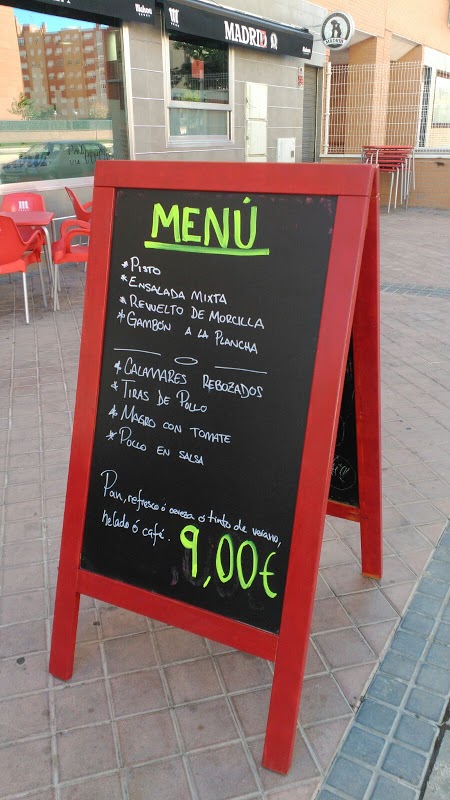 Mahou
MADRID
MENÚ
* PISTO
* ENSALADA MIXTA
* REVUELTO DE MORCILLA
* GAMBÓN A LA PLANCHA
* CALAMARES REBOZADOS
* TIRAS DE POLLO
* MAGRO CON TOMATE
* POLLO EN SALSA
Pan, refresco ó cerveza ó tinto de verano,
helado ó café.
9,00€